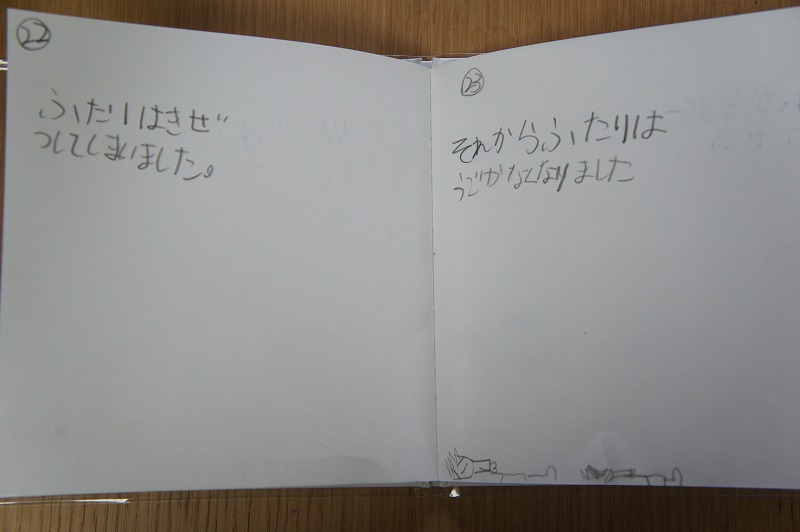 22
ふたりはきぜ
つしてしまいました。
23
それからふたりは
うごかなくなりました